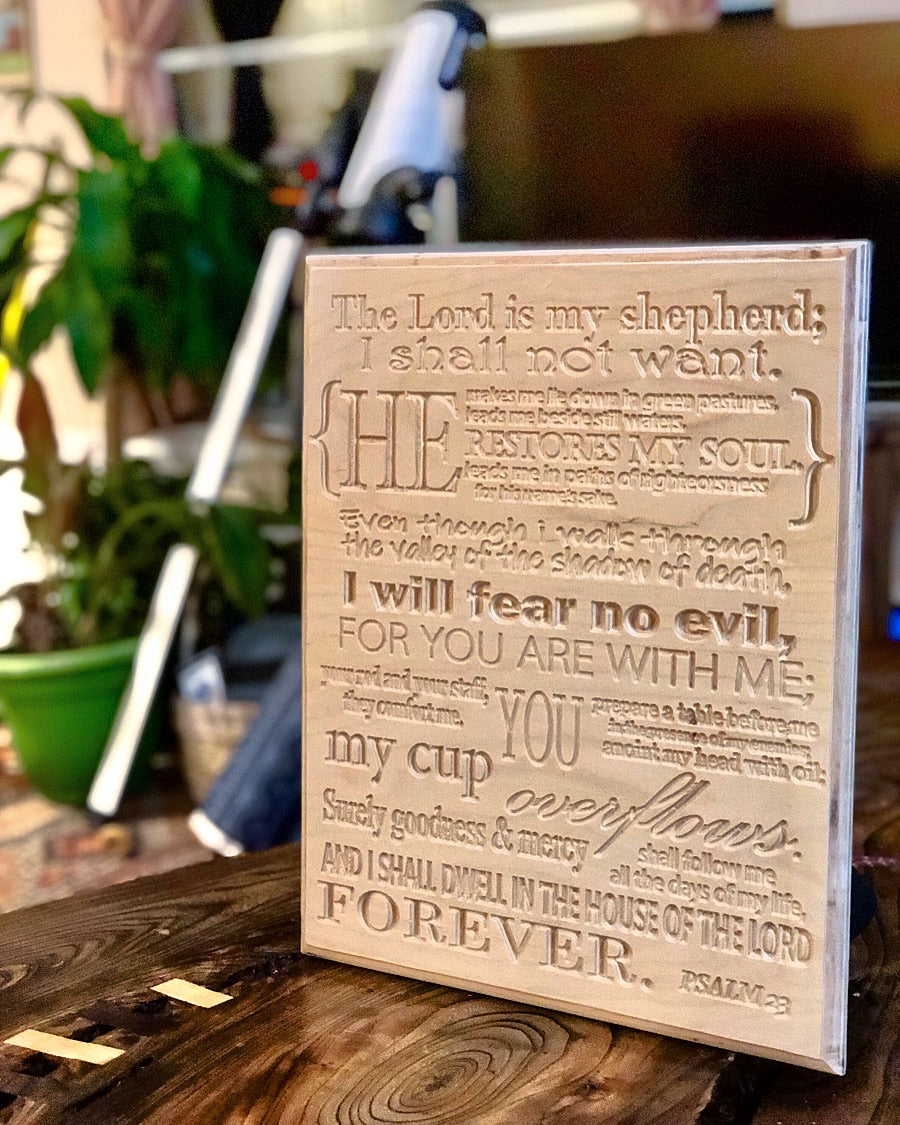 The Lord is my shepherd;
I shall not want.
{HE
makes me lie down in green pastures.
leads me beside still waters.
RESTORES MY SOUL.
leads me in paths of righteousness
for his name's sake.
}
Even though i walk through
the valley of the shadow of death.
I will fear no evil,
FOR YOU ARE WITH ME;
your rod and your staff,
they comfort me.
YOU
prepare a table before me
in the presence of my enemies;
anoint my head with oil;
my cup
overflows.
Surely goodness & mercy
shall follow me
all the days of my life,
AND I SHALL DWELL IN THE HOUSE OF THE LORD
FOREVER.
PSALM 23